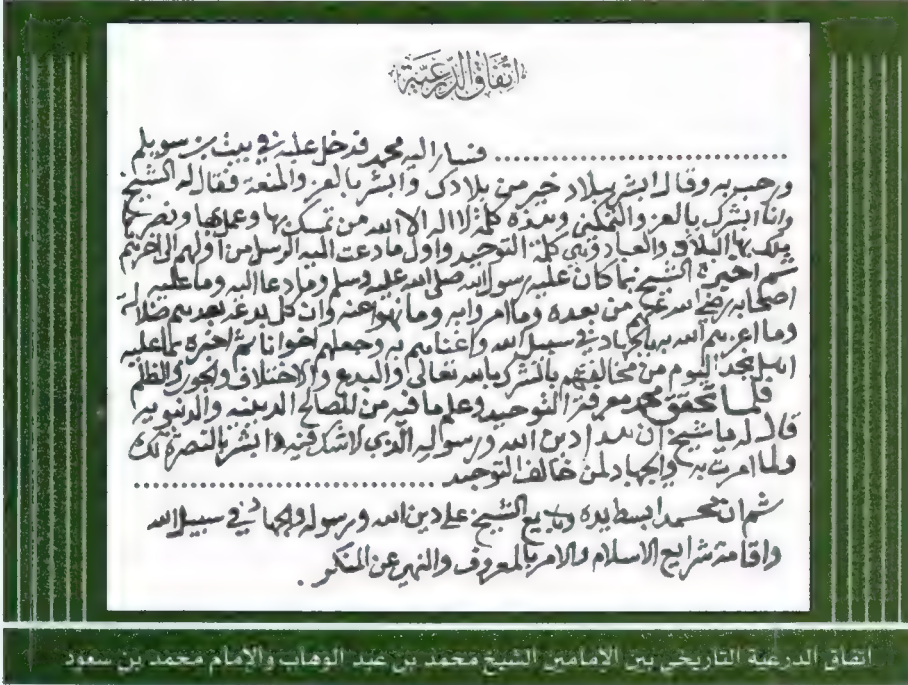 اتفاق الدرعية
فسار اليه محمد فدخل عليه في بيت بن سويلم
ورحب به وقال ابشر ببلاد خير من بلادك وابشر بالعز والمنعة فقال له الشيخ
وانا ابشرك بالعز والتمكين وهذه كلمة لا اله الا الله من تمسك بها وعمل بها ونصرها
ملك بها البلاد والعباد وهي كلمة التوحيد واول ما دعت اليه الرسل من اولهم الى اخرهم
ثم اخبره الشيخ بما كان عليه رسول الله صلى الله عليه وسلم وما دعا اليه وما عليه
اصحابه رضي الله عنهم من بعده وما امروا به وما نهوا عنه وان كل بدعة بعدهم ضلالة
وما اعزهم الله به بالجهاد في سبيل الله واغناهم به وجعلهم اخوانا ثم اخبره بما عليه
اهل نجد اليوم من مخالفتهم بالشرك بالله تعالى والبدع والاختلاف والجور والظلم
فلما تحقق محمد معرفة التوحيد وعلم ما فيه من المصالح الدينيه والدنيويه
قال له يا شيخ ان هذا دين الله ورسوله الذي لا شك فيه وابشر بالنصرة لك
ولما امرت به والجهاد لمن خالف التوحيد
ثم ان محمد ابسط يده وبايع الشيخ على دين الله ورسوله والجهاد في سبيل الله
واقامة شرايع الاسلام والامر بالمعروف والنهي عن المنكر .
اتفاق الدرعية التاريخي بين الامامين الشيخ محمد بن عبد الوهاب والإمام محمد بن سعود